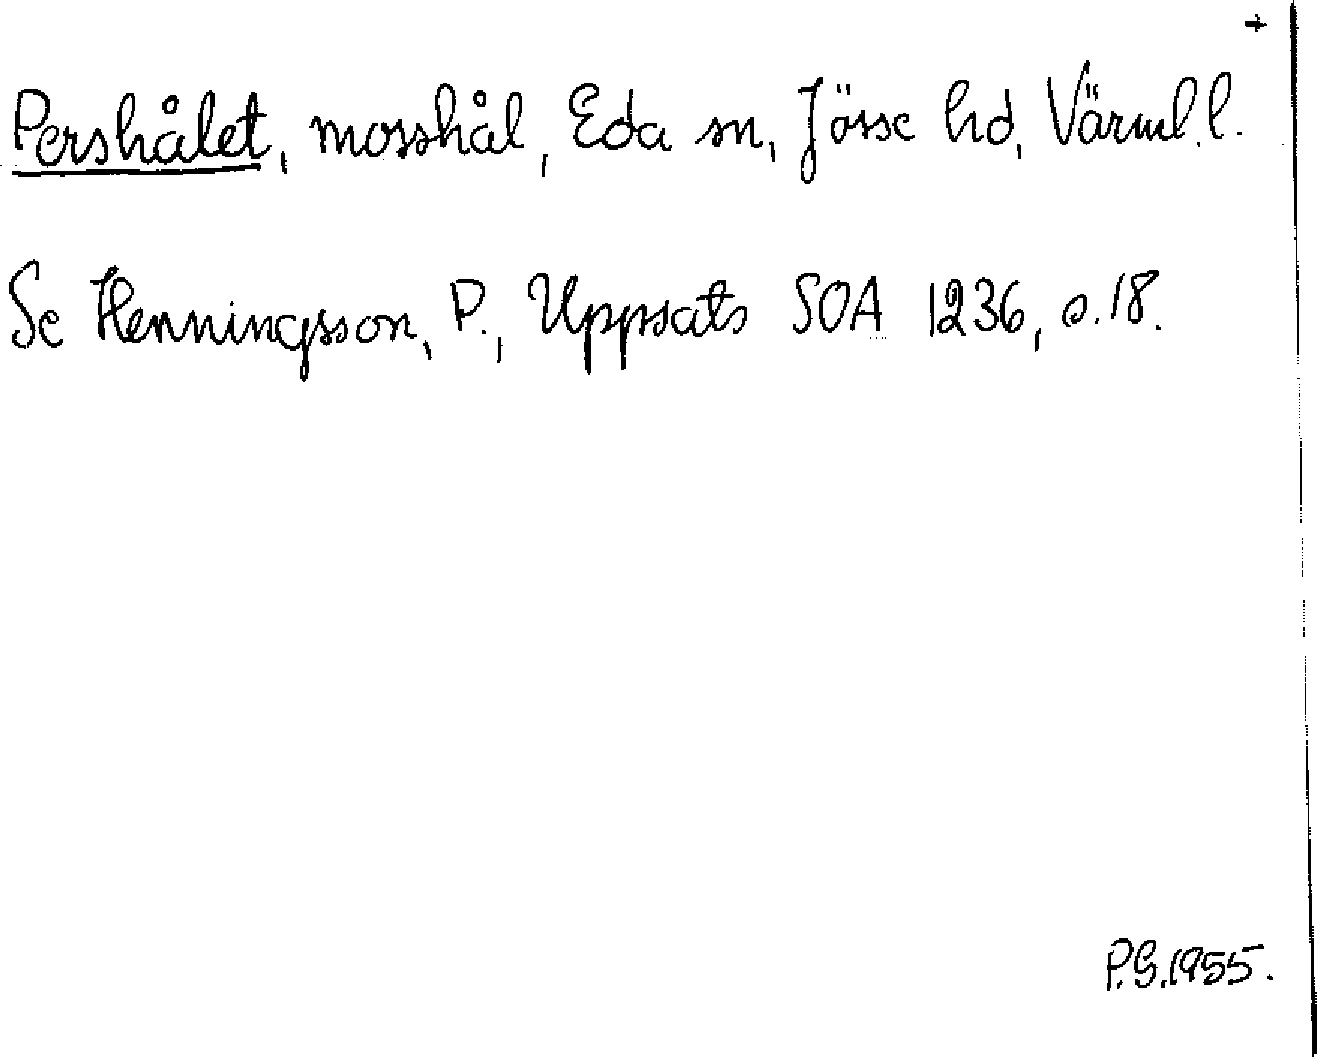 +
Pershålet, mosshål, Eda sn, Jösse hd, Värml. l.
Se Henningsson, P., Uppsats SOA 1236, s. 18.
P.G. 1955.